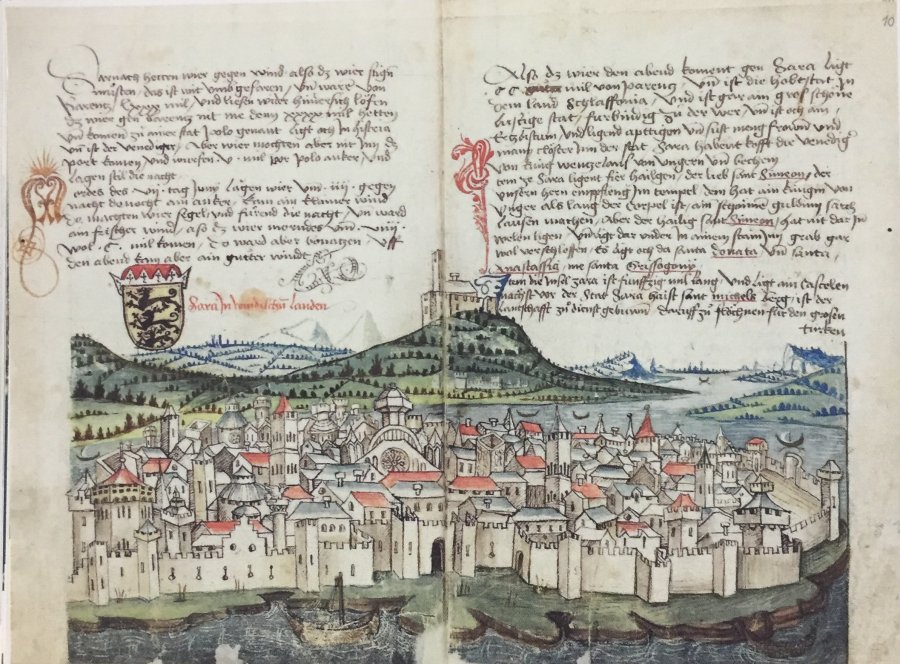 Darnach hetten wier gegen wind also dz wier
müsten, das ist wit umb gefaren, und ware von
Parentz, lxxx mil, und liesen wider hindersich lofen
dz wier gen parentz nit me denn xxxxx mil hetten
und komen zu ainer stat polo genant ligt och in Histria
und ist der venediger, Aber wier mochten aber nit Inn dz
port komen und wurfen v mil por polo anker, und
lagen stil die nacht
ordes des vij tag Juny lagen wier untz iiij gegen
nacht do nocht am anker, kam ain klainer wind
do machten wier segel, und fürend die nacht, und ward
ain frischer wind, also dz wier morndes umb viij
wol C mil komen, do ward aber bonatzen, uff
den abend kam aber ain gutter windt
Zara In windischen landen
10
Also dz wier den abend koment gen Zara ligt
CC mil von parentz, und ist die hobtstat In
dem land Schlaffonia, und ist gar ain gros schöne
stat, fürbindig zu der wer, und ist och ain
Ertzbistum, und ligend apttigen und sust meng frowen und
mann closter Inn der stat Zara habent kofft die venediger
von küng wentzelaus von ungern und bechem
ze Zara ligent fier hailgen, der lieb sant Simeon, der
unsern hern empfieng Im tempel, dem hat ain küngin von
unger als lang der corpel ist, ain schönne guldinn sarch
laussen machen, Aber der hailig sant Simeon, hat nit dar In
welen ligen, und ligt dar under in ainem stainin grab gar
wol verschlossen, Es ligt och da santa Donata und santa
Anastassia, me santa Grisogony
die Insel zara ist funffzig mil lang, und ligt ain castelen
nächst vor der stat Zara haist sant michels berg, ist der
lantschafft zu dienst gebuwen, daruff zu flöchnen für den grosen
türcken